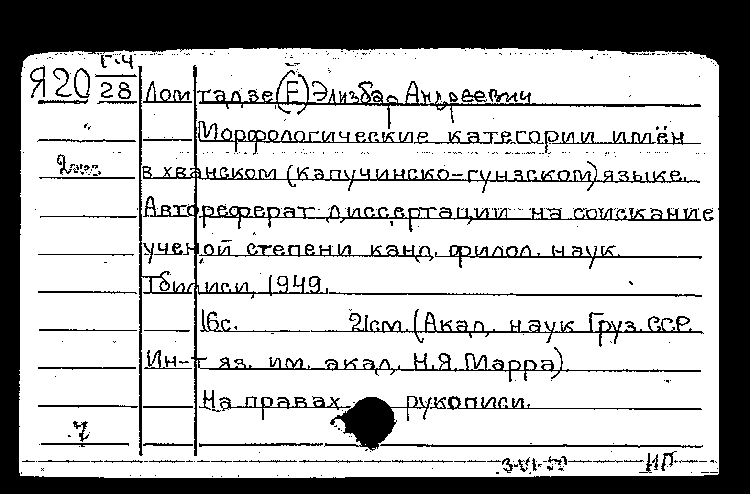 Г-4
Я20 28 Ломтадзе (Е) Элизбар Андреевич
Морфологические категории имён
в хванском (капучинско-гунзском) языке.
Автореферат диссертации на соискание
ученой степени канд. филол. наук.
Тбилиси, 1949.
16с. 21см. (Акад. наук Груз.ССР.
Ин-т яз. им. акад. Н.Я.Марра).
На правах рукописи.
7
3-VI-50 ИП